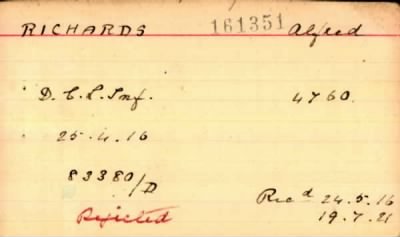 RICHARDS 161351 Alfred
D.C.L.Inf. 4760.
25.4.16
83380/D
Rec d 24.5.16
Rejected 19.7.21